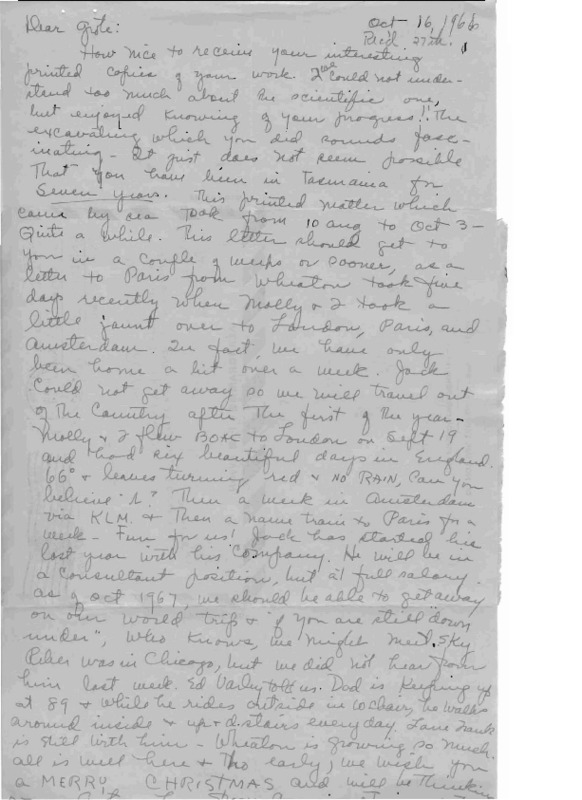 Oct 16, 1966
Dear Grote:
Rec'd 27th.
How nice to receive your interesting
printed copies of your work. I could not under-
stand too much about the scientific one,
but enjoyed knowing of your progress!! The
excavating which you did sounds fasc-
inating - It just does not seem possible
That you have been in Tasmania for
Seven years. This printed matter which
came by sea took from 10 aug to Oct 3-
Quite a while. This letter should get to
you in a couple of weeks or sooner, as a
letter to Paris from Wheaton took five
days recently when Molly & I took a
little jaunt over to London, Paris, and
Amsterdam. In fact, we have only
been home a bit over a week. Jack
Could not get away so we will travel out
of the Country after The first of the year-
Molly & I flew BOAC to London on Sept 19
and had six beautiful days in England.
66° & leaves turning red & NO RAIN, Can you
believe it? Then a week in Amsterdam
via KLM. & Then a train to Paris for a
week - Fun for us! Jack has started his
last year with his Company. He will be in
a consultant position, but at full salary.
as of Oct 1967, we should be able to get away
on our world trip & "if you are still down
under", Who Knows, we might meet. Sky
was in Chicago, but we did not hear from
him last week. Ed told us. Dad is Keeping up
at 89 & while he rides outside in chair, he walks
around inside & up & d.stairs everyday.
is still with him - Wheaton is growing so much.
all is well here & Tho early, we wish you
a MERRY CHRISTMAS and will be thinking